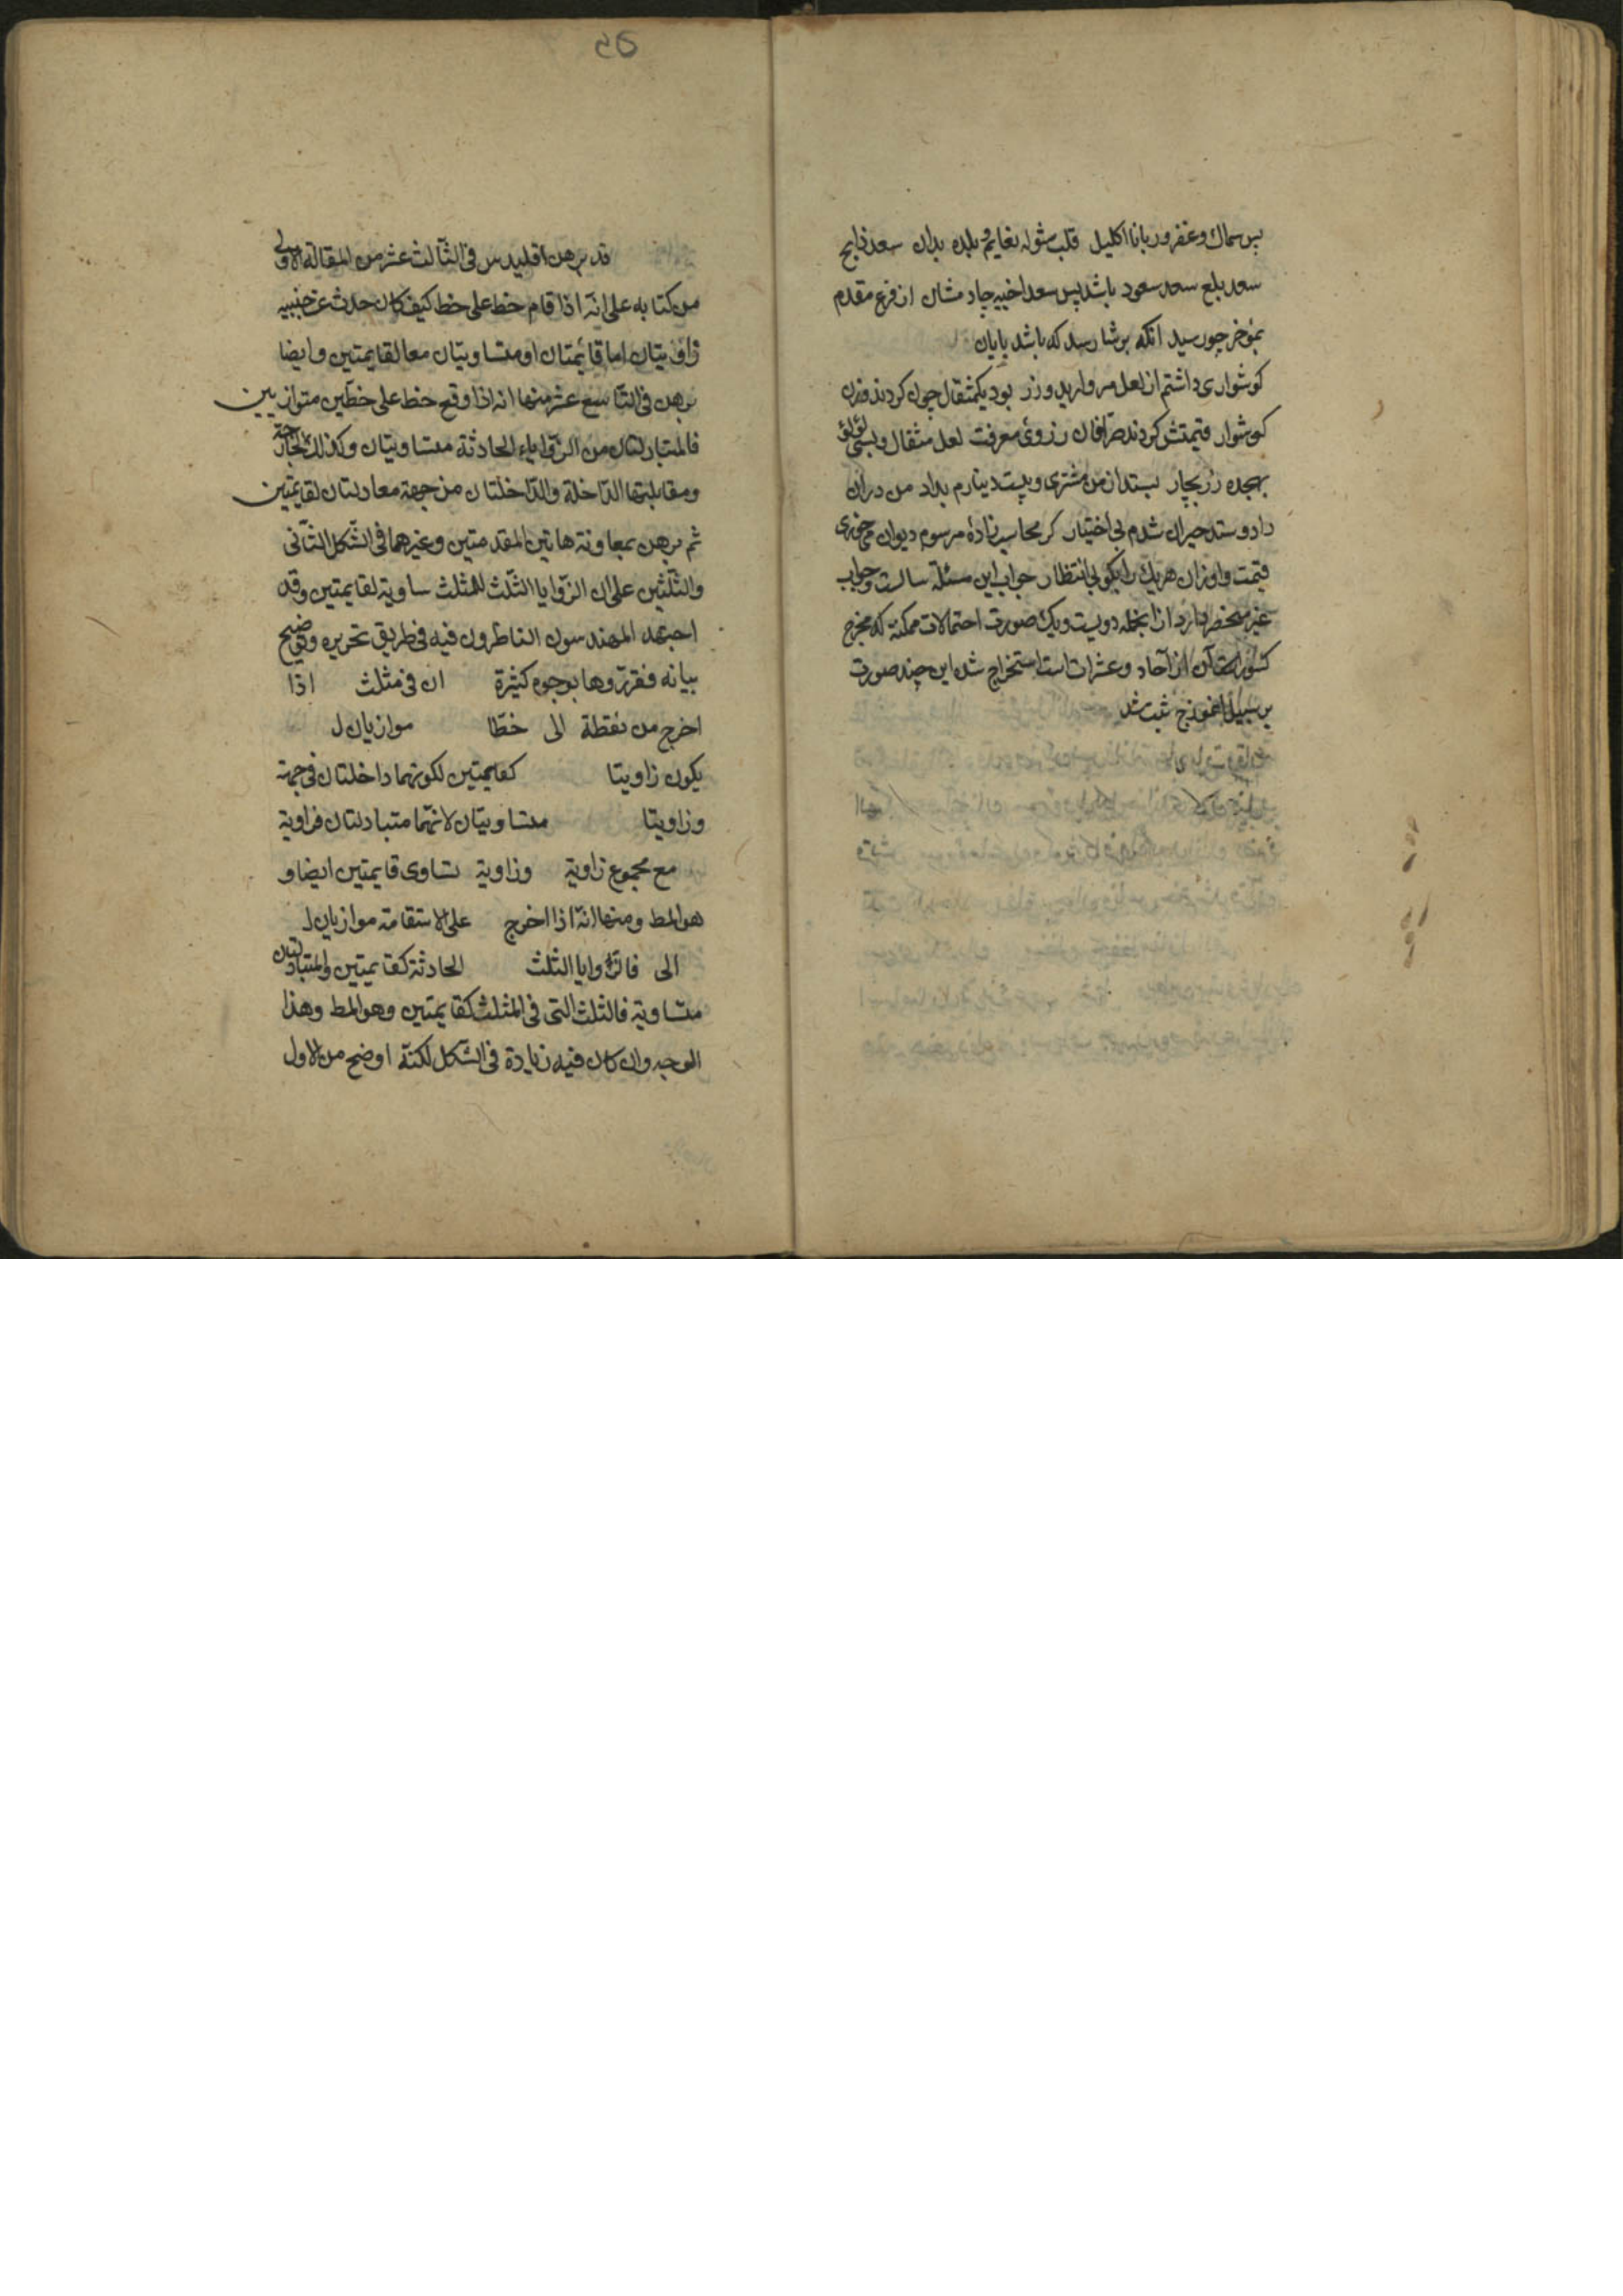 پس سماك وغفر وربانا اكليل قلب شوله نعايم و بلده بدان سعد ذابح
سعد بلع سعد سعود باشد پس سعد اخبيه چار مشان از فرع مقدم
بمؤخر چو رسيد آنكه برشا رسد كه باشد پايان
كوشوارى داشتم از لعل مرواريد وزر بود يكمثقال چون كردند وزن
كوشوار قيمتش كردند صرافان ز روى معرفت لعل مثقال و بسى لؤلؤ
بهجده زر بچار بستد از من مشترى و بيست دينارم بداد من دران
داد و ستد حيران شدم بى اختيار كر محاسب زاده مرسوم ديوان مى خورى
قيمت و اوزان هر يك را بكو بى انتظار جواب اين مسئله سيالست و جواب
غير منحصر دارد از انجمله دويست و يك صورت احتمالات ممكنه كه مخرج
كسور آن از آحاد و عشرات است استخراج شد اين چند صورت
بر سبيل انموذج ثبت شد
55
قد برهن اقليدس فى الثالث عشر من المقالة الاولى
من كتابه على انه اذا قام خط على خط كيف كان حدث عن جنبيه
زاويتان اما قائمتان او متساويتان معا لقايمتين وايضا
برهن فى التاسع عشر منها انه اذا وقع خط على خطين متوازيين
فالمتبادلتان من الزوايا الحادثة متساويتان وكذلك الخارجة
ومقابلتها الداخلة والداخلتان من جهة معادلتان لقايمتين
ثم برهن بمعاونة هاتين المقدمتين وغيرهما فى الشكل الثانى
والثلثين على ان الزوايا الثلث للمثلث مساوية لقايمتين وقد
اجتهد المهندسون الناظرون فيه فى طريق تحريره وتوضيح
بيانه فقرروها بوجوه كثيرة ان فى مثلث اذا
اخرج من نقطة الى خطا موازيا ل
يكون زاويتا كقايمتين لكونهما داخلتان فى جهة
وزاويتا متساويتان لانهما متبادلتان فزاوية
مع مجموع زاوية وزاوية تساوى قايمتين ايضا و
هو المط ومنها انه اذا اخرج على الاستقامة موازيا ل
الى فالزوايا الثلث الحادثة كقايمتين والمتبادلتان
متساوية فالثلث التى فى المثلث كقايمتين وهو المط وهذا
الوجه وان كان فيه زيادة فى الشكل لكنه اوضح من الاول